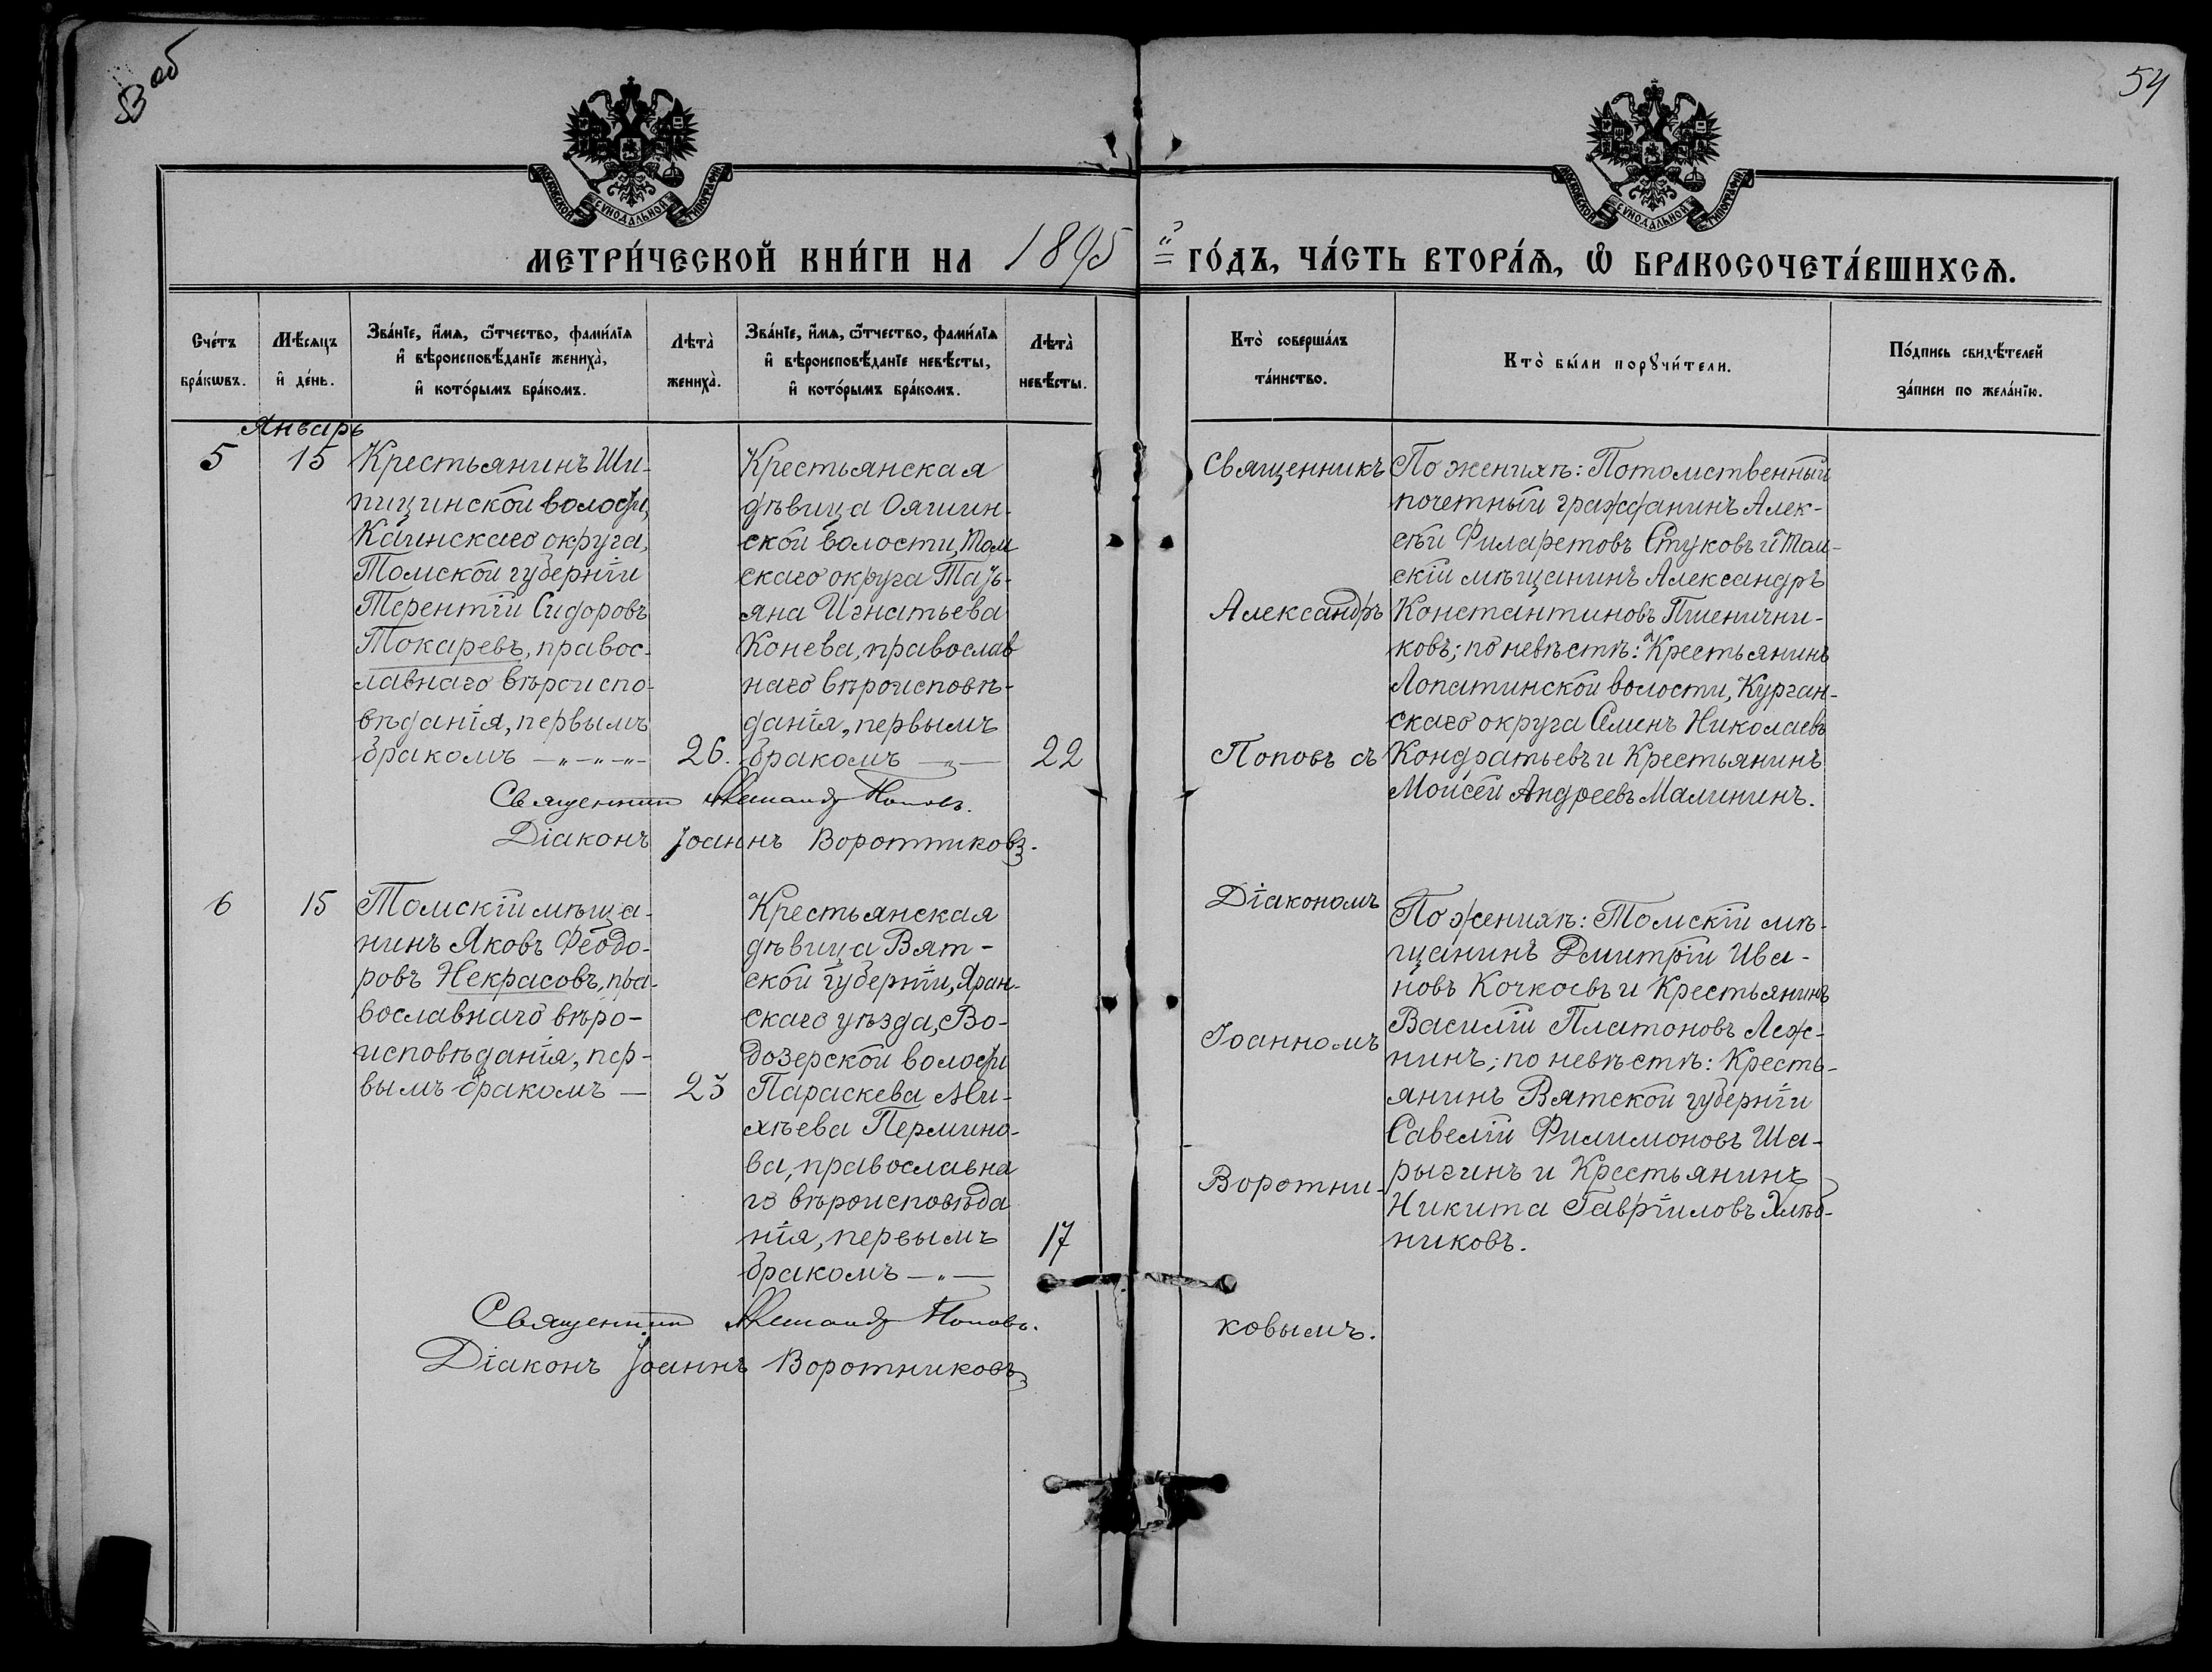 53 об
54
МОСКОВСКОЙ СѴНОДАЛЬНОЙ ТИПОГРАФІИ
МОСКОВСКОЙ СѴНОДАЛЬНОЙ ТИПОГРАФІИ
МЕТРИ́ЧЕСКОЙ КНИ́ГИ НА 1895 ГО́ДЪ, ЧА́СТЬ ВТОРА́Ѧ, Ѽ БРАКОСОЧЕТА́ВШИХСѦ.
Сче́тъ
бра́кѡвъ.
Мѣ́сѧцъ
и҆ де́нь.
Зва́нїе, и҆́мѧ, ѻ҆́тчество, фами́лїѧ
и҆ вѣроисповѣ́данїе жениха̀,
и҆ кото́рымъ бра́комъ.
Лѣта̀
жениха̀.
Зва́нїе, и҆́мѧ, ѻ҆́тчество, фами́лїѧ
и҆ вѣроисповѣ́данїе невѣ́сты,
и҆ кото́рымъ бра́комъ.
Лѣта̀
невѣ́сты.
Кто̀ соверша́лъ
та́инство.
Кто̀ бы́ли порꙋчи́тели.
По́дпись свидѣ́телей
за́писи по жела́нїю.
Январь
5
15
Крестьянинъ Ши-
пицинской волости,
Каинскаго округа,
Томской губерніи
Терентій Сидоровъ
Токаревъ, правос-
лавнаго вѣроиспо-
вѣданія, первымъ
бракомъ — „ — „ — „ —
26.
Крестьянская
дѣвица Ояшин-
ской волости, Том
скаго округа Тать-
яна Игнатьева
Конева, православ
наго вѣроисповѣ-
данія, первымъ
бракомъ — „ —
22
Священникъ
Александръ
Поповъ съ
По женихѣ: Потомственный
почетный гражданинъ Алек-
сѣй Филаретовъ Стуковъ и Том-
скій мѣщанинъ Александръ
Константиновъ Пшенични-
ковъ; по невѣстѣ: Крестьянинъ
Лопатинской волости, Курган-
скаго округа Семенъ Николаевъ
Кондратьевъ и Крестьянинъ
Моисей Андреевъ Малининъ.
Священникъ Александръ Поповъ.
Діаконъ Іоаннъ Воротниковъ.
6
15
Томскій мѣща-
нинъ Яковъ Ѳеодо-
ровъ Некрасовъ, пра-
вославнаго вѣро-
исповѣданія, пер-
вымъ бракомъ —
23
Крестьянская
дѣвица Вят-
ской губерніи, Яран-
скаго уѣзда, Во-
дозерской волости
Параскева Ми-
хѣева Пермино-
ва, православна
го вѣроисповѣда
нія, первымъ
бракомъ — „ —
17
Діакономъ
Іоанномъ
Воротни-
ковымъ.
По женихѣ: Томскій мѣ-
щанинъ Дмитрій Ива-
новъ Кочкоевъ и Крестьянинъ
Василій Платоновъ Леж-
нинъ; по невѣстѣ: Кресть-
янинъ Вятской губерніи
Савелій Филимоновъ Ша-
рыгинъ и Крестьянинъ
Никита Гавріиловъ Хлѣб-
никовъ.
Священникъ Александръ Поповъ.
Діаконъ Іоаннъ Воротниковъ